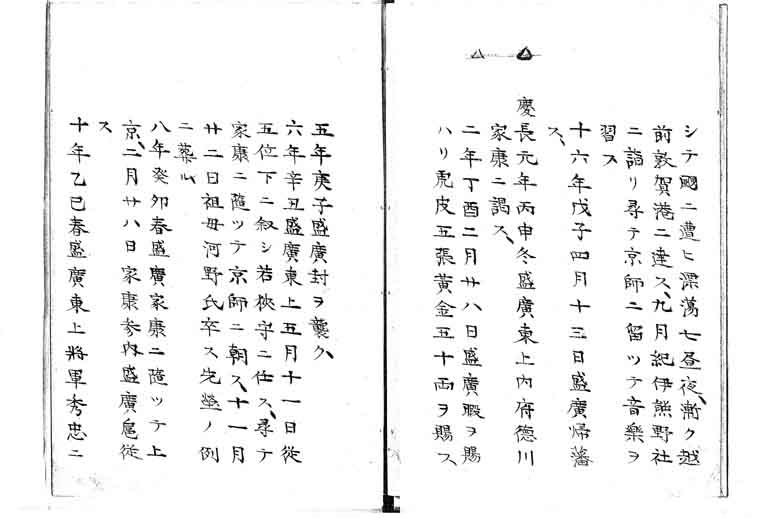 シテ颶ニ遭ヒ漂蕩七昼夜、漸ク越
前敦賀港ニ達ス、九月紀伊熊野社
ニ詣リ尋テ京師ニ留ツテ音樂ヲ
習ス
十六年戊子四月十三日盛廣帰藩
ス、
慶長元年丙申冬盛廣東上内府徳川
家康ニ謁ス、
二年丁酉二月廿八日盛廣暇ヲ賜
ハリ虎皮五張黄金五十両ヲ賜ス、
五年庚子盛廣封ヲ襲ク、
六年辛丑盛廣東上五月十一日従
五位下ニ叙シ若狹守ニ仕ス、尋テ
家康ニ隨ツテ京師ニ朝ス、十一月
廿二日祖母河野氏卒ス先塋ノ例
ニ葬ル
八年癸卯春盛廣家康ニ隨ツテ上
京、二月廿八日家康参内盛廣扈従
ス
十年乙巳春盛廣東上將軍秀忠ニ